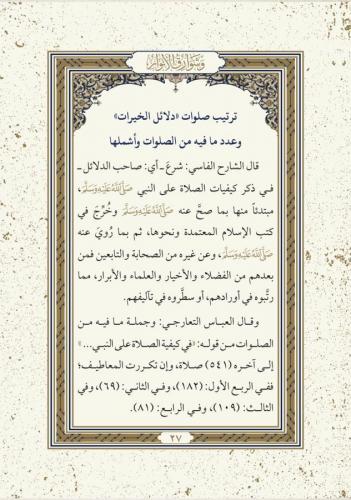 وشوارق الأنوار
ترتيب صلوات «دلائل الخيرات»
وعدد ما فيه من الصلوات وأشملها
قال الشارح الفاسي: شرعَ ـ أي: صاحب الدلائل ـ
في ذكر كيفيات الصلاة على النبي ﷺ،
مبتدئاً منها بما صحَّ عنه ﷺ وخُرِّج في
كتب الإسلام المعتمدة ونحوها، ثم بما رُويَ عنه
ﷺ، وعن غيره من الصحابة والتابعين فمن
بعدهم من الفضلاء والأخيار والعلماء والأبرار، مما
رتَّبوه في أورادهم، أو سطَّروه في تآليفهم.
وقال العباس التعارجي: وجملة ما فيه من
الصلوات من قوله: «في كيفية الصلاة على النبي...»
إلى آخره (٥٤١) صلاة، وإن تكررت المعاطيف؛
ففي الربع الأول: (١٨٢)، وفي الثاني: (٦٩)، وفي
الثالث: (١٠٩)، وفي الرابع: (٨١).
٢٧